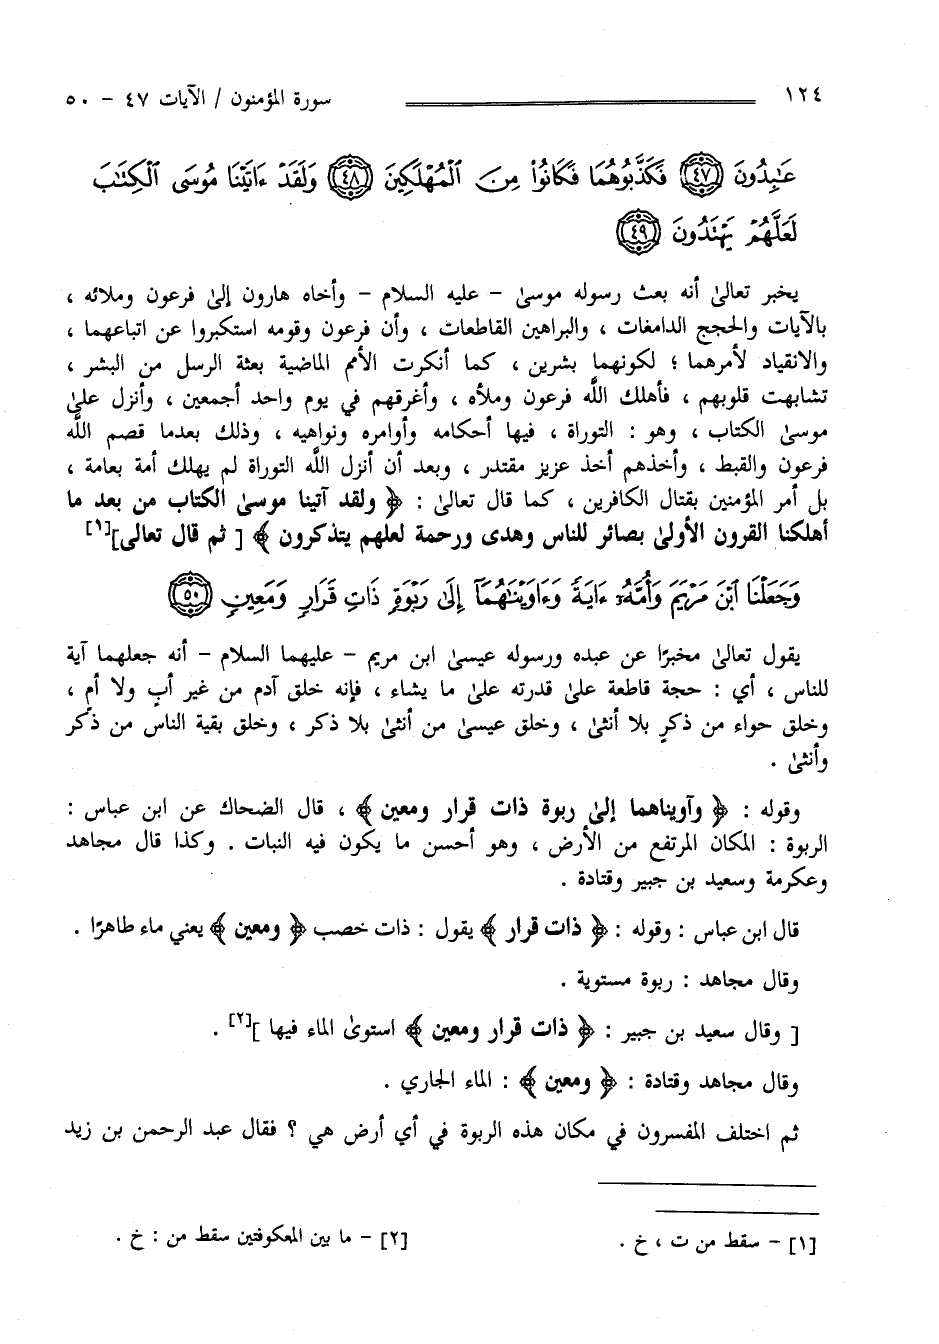 ١٢٤ سورة المؤمنون / الآيات ٤٧ - ٥٠
عَٰبِدُونَ ٤٧ فَكَذَّبُوهُمَا فَكَانُوا۟ مِنَ ٱلْمُهْلَكِينَ ٤٨ وَلَقَدْ ءَاتَيْنَا مُوسَى ٱلْكِتَٰبَ
لَعَلَّهُمْ يَهْتَدُونَ ٤٩
يخبر تعالىٰ أنه بعث رسوله موسىٰ - عليه السلام - وأخاه هارون إلىٰ فرعون وملائه ،
بالآيات والحجج الدامغات ، والبراهين القاطعات ، وأن فرعون وقومه استكبروا عن اتباعهما ،
والانقياد لأمرهما ؛ لكونهما بشرين ، كما أنكرت الأمم الماضية بعثة الرسل من البشر ،
تشابهت قلوبهم ، فأهلك اللَّه فرعون وملأه ، وأغرقهم في يوم واحد أجمعين ، وأنزل علىٰ
موسىٰ الكتاب ، وهو : التوراة ، فيها أحكامه وأوامره ونواهيه ، وذلك بعدما قصم اللَّه
فرعون والقبط ، وأخذهم أخذ عزيز مقتدر ، وبعد أن أنزل اللَّه التوراة لم يهلك أمة بعامة ،
بل أمر المؤمنين بقتال الكافرين ، كما قال تعالىٰ : ﴿ ولقد آتينا موسىٰ الكتاب من بعد ما
أهلكنا القرون الأولىٰ بصائر للناس وهدى ورحمة لعلهم يتذكرون ﴾ [ ثم قال تعالى][١]
وَجَعَلْنَا ٱبْنَ مَرْيَمَ وَأُمَّهُۥٓ ءَايَةً وَءَاوَيْنَٰهُمَآ إِلَىٰ رَبْوَةٍ ذَاتِ قَرَارٍ وَمَعِينٍ ٥٠
يقول تعالىٰ مخبرًا عن عبده ورسوله عيسىٰ ابن مريم - عليهما السلام - أنه جعلهما آية
للناس ، أي : حجة قاطعة علىٰ قدرته علىٰ ما يشاء ، فإنه خلق آدم من غير أبٍ ولا أمٍ ،
وخلق حواء من ذكرٍ بلا أنثىٰ ، وخلق عيسىٰ من أنثىٰ بلا ذكر ، وخلق بقية الناس من ذكر
وأنثىٰ .
وقوله : ﴿ وآويناهما إلىٰ ربوة ذات قرار ومعين ﴾ ، قال الضحاك عن ابن عباس :
الربوة : المكان المرتفع من الأرض ، وهو أحسن ما يكون فيه النبات . وكذا قال مجاهد
وعكرمة وسعيد بن جبير وقتادة .
قال ابن عباس : وقوله : ﴿ ذات قرار ﴾ يقول : ذات خصب ﴿ ومعين ﴾ يعني ماء طاهرًا .
وقال مجاهد : ربوة مستوية .
[ وقال سعيد بن جبير : ﴿ ذات قرار ومعين ﴾ استوىٰ الماء فيها ][٢] .
وقال مجاهد وقتادة : ﴿ ومعين ﴾ : الماء الجاري .
ثم اختلف المفسرون في مكان هذه الربوة في أي أرض هي ؟ فقال عبد الرحمن بن زيد
[١] - سقط من ت ، خ . [٢] - ما بين المعكوفتين سقط من : خ .